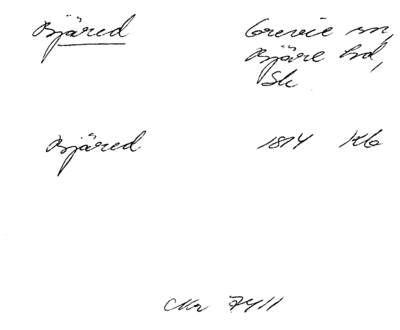 Bjäred Grevie sn,
Bjäre hd,
Sk
Bjäred 1814 Kb
7411